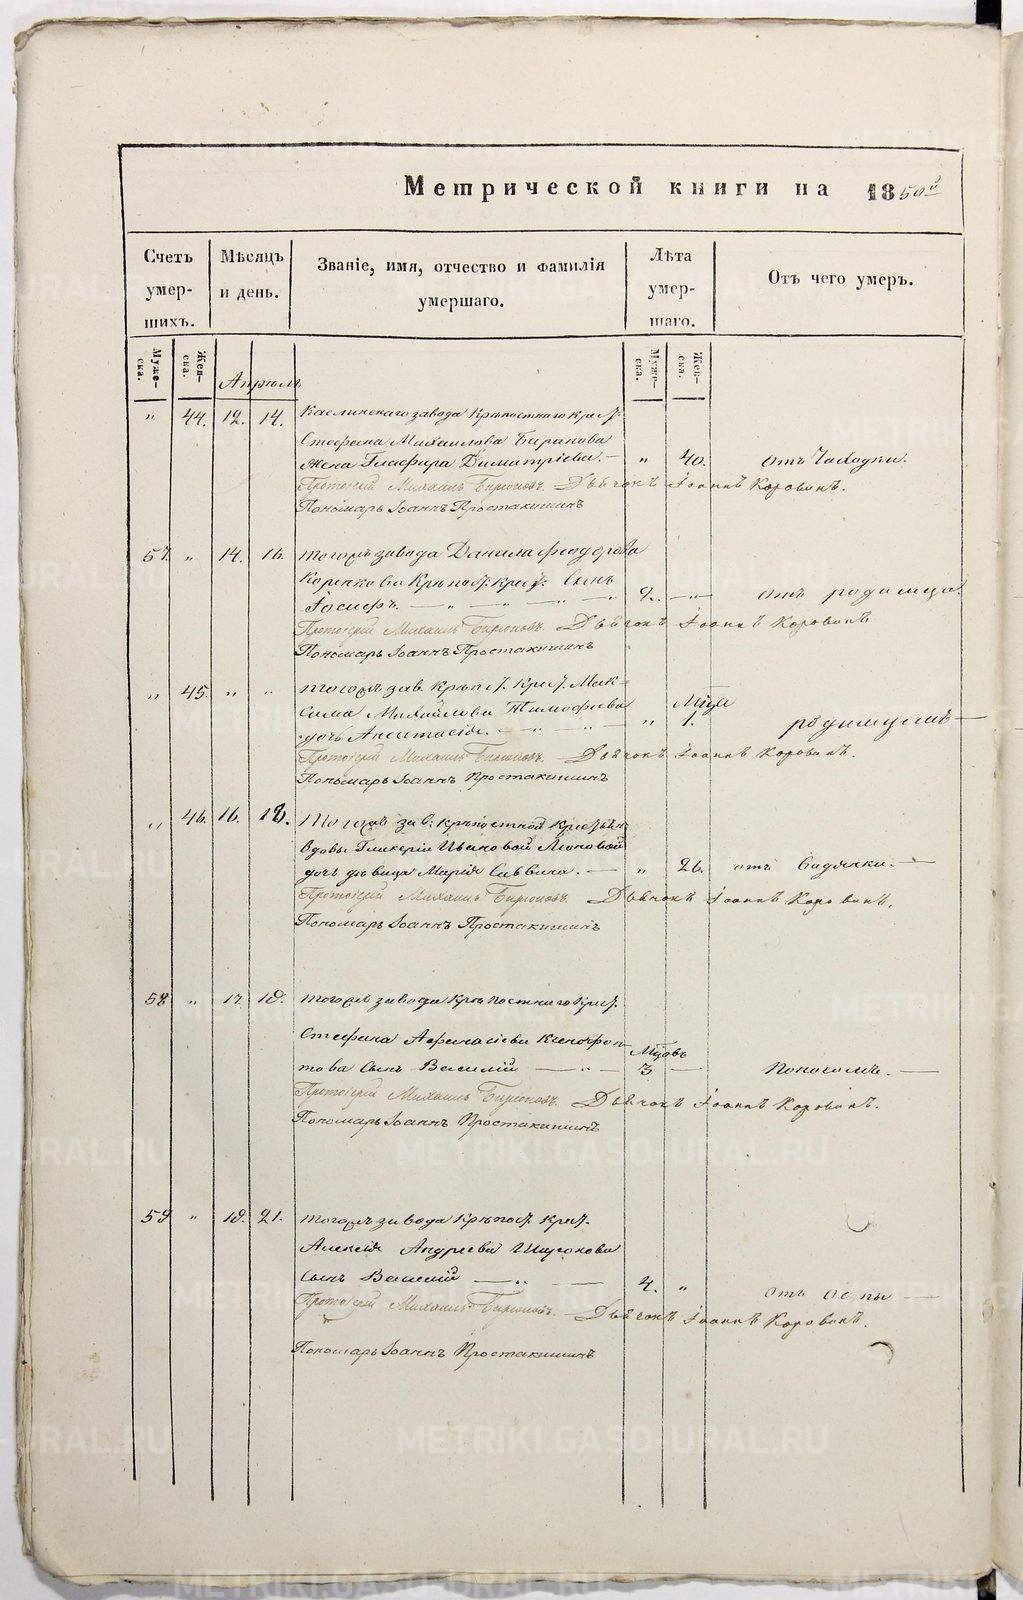 Метрической книги на 1850й
Счетъ умер-шихъ. Мѣсяцъ и день. Званіе, имя, отчество и фамилія умершаго. Лѣта умер-шаго. Отъ чего умеръ.
Муже-ска. Жен-ска. Муже-ска. Жен-ска.
Апрѣль
" 44. 12. 14. Каслинскаго завода Крѣпостнаго Крест.
Стефана Михаилова Баранова
Жена Глафира Димитріева. — " 40. Отъ Чахотки.
Протоіерей Михаилъ Бирюковъ. Дьячокъ Іоаннъ Коровинъ.
Пономарь Іоаннъ Простакишинъ
57. " 14. 16. Тогожъ завода Данила Феодорова
Крѣпост. крест: Сынъ
Іосифъ. — " — " — " 2. — " — отъ родимца.
Протоіерей Михаилъ Бирюковъ. Дьячокъ Іоаннъ Коровинъ
Пономарь Іоаннъ Простакишинъ
" 45. " " Тогожъ зав. Крѣпст. Крест. Мак-
сима Михайлова Тимофеева Мѣца
дочь Анастасія. — " — " 1. родимцемъ —
Протоіерей Михаилъ Бирюковъ. Дьячокъ Іоаннъ Коровинъ.
Пономарь Іоаннъ Простакишинъ
" 46. 16. 18. Тогожъ зав: крѣпостной Крестьян
Вдовы Гликеріи Ивановой
дочь дѣвица Марія Саввина. — " 26. отъ Водянки. —
Протоіерей Михаилъ Бирюковъ. Дьячокъ Іоаннъ Коровинъ.
Пономарь Іоаннъ Простакишинъ
58 " 17. 18. Тогожъ завода Крѣпостнаго Крест.
Стефана Афанасіева Ксенофон-
това Сынъ Василій — " — Мѣцовъ 3 — Поносомъ. —
Протоіерей Михаилъ Бирюковъ. Дьячокъ Іоаннъ Коровинъ.
Пономарь Іоаннъ Простакишинъ
59 " 18. 21. Тогожъ завода Крѣпост. Крест.
Алексія Андреева
Сынъ Василій — " — 4. " отъ оспы —
Протоіерей Михаилъ Бирюковъ. — Дьячокъ Іоаннъ Коровинъ.
Пономарь Іоаннъ Простакишинъ
METRIKI.GASO-URAL.RU